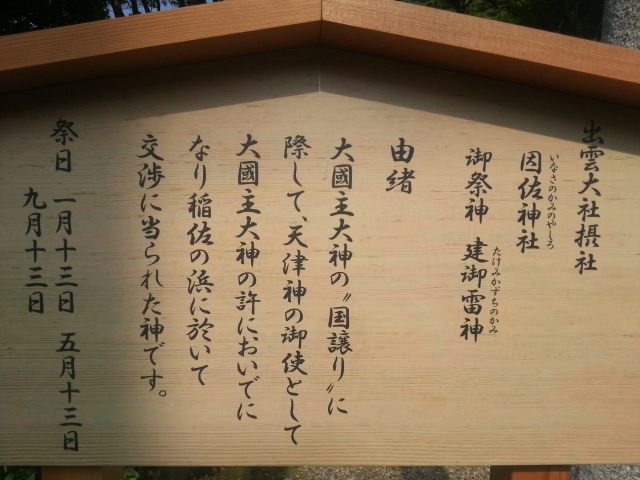 出雲大社摂社
いなさのかみのやしろ
因佐神社
たけみかずちのかみ
御祭神 建御雷神
由緒
大國主大神の〝国譲り〟に
際して、天津神の御使として
大國主大神の許においでに
なり稲佐の浜に於いて
交渉に当られた神です。
祭日 一月十三日 五月十三日
九月十三日